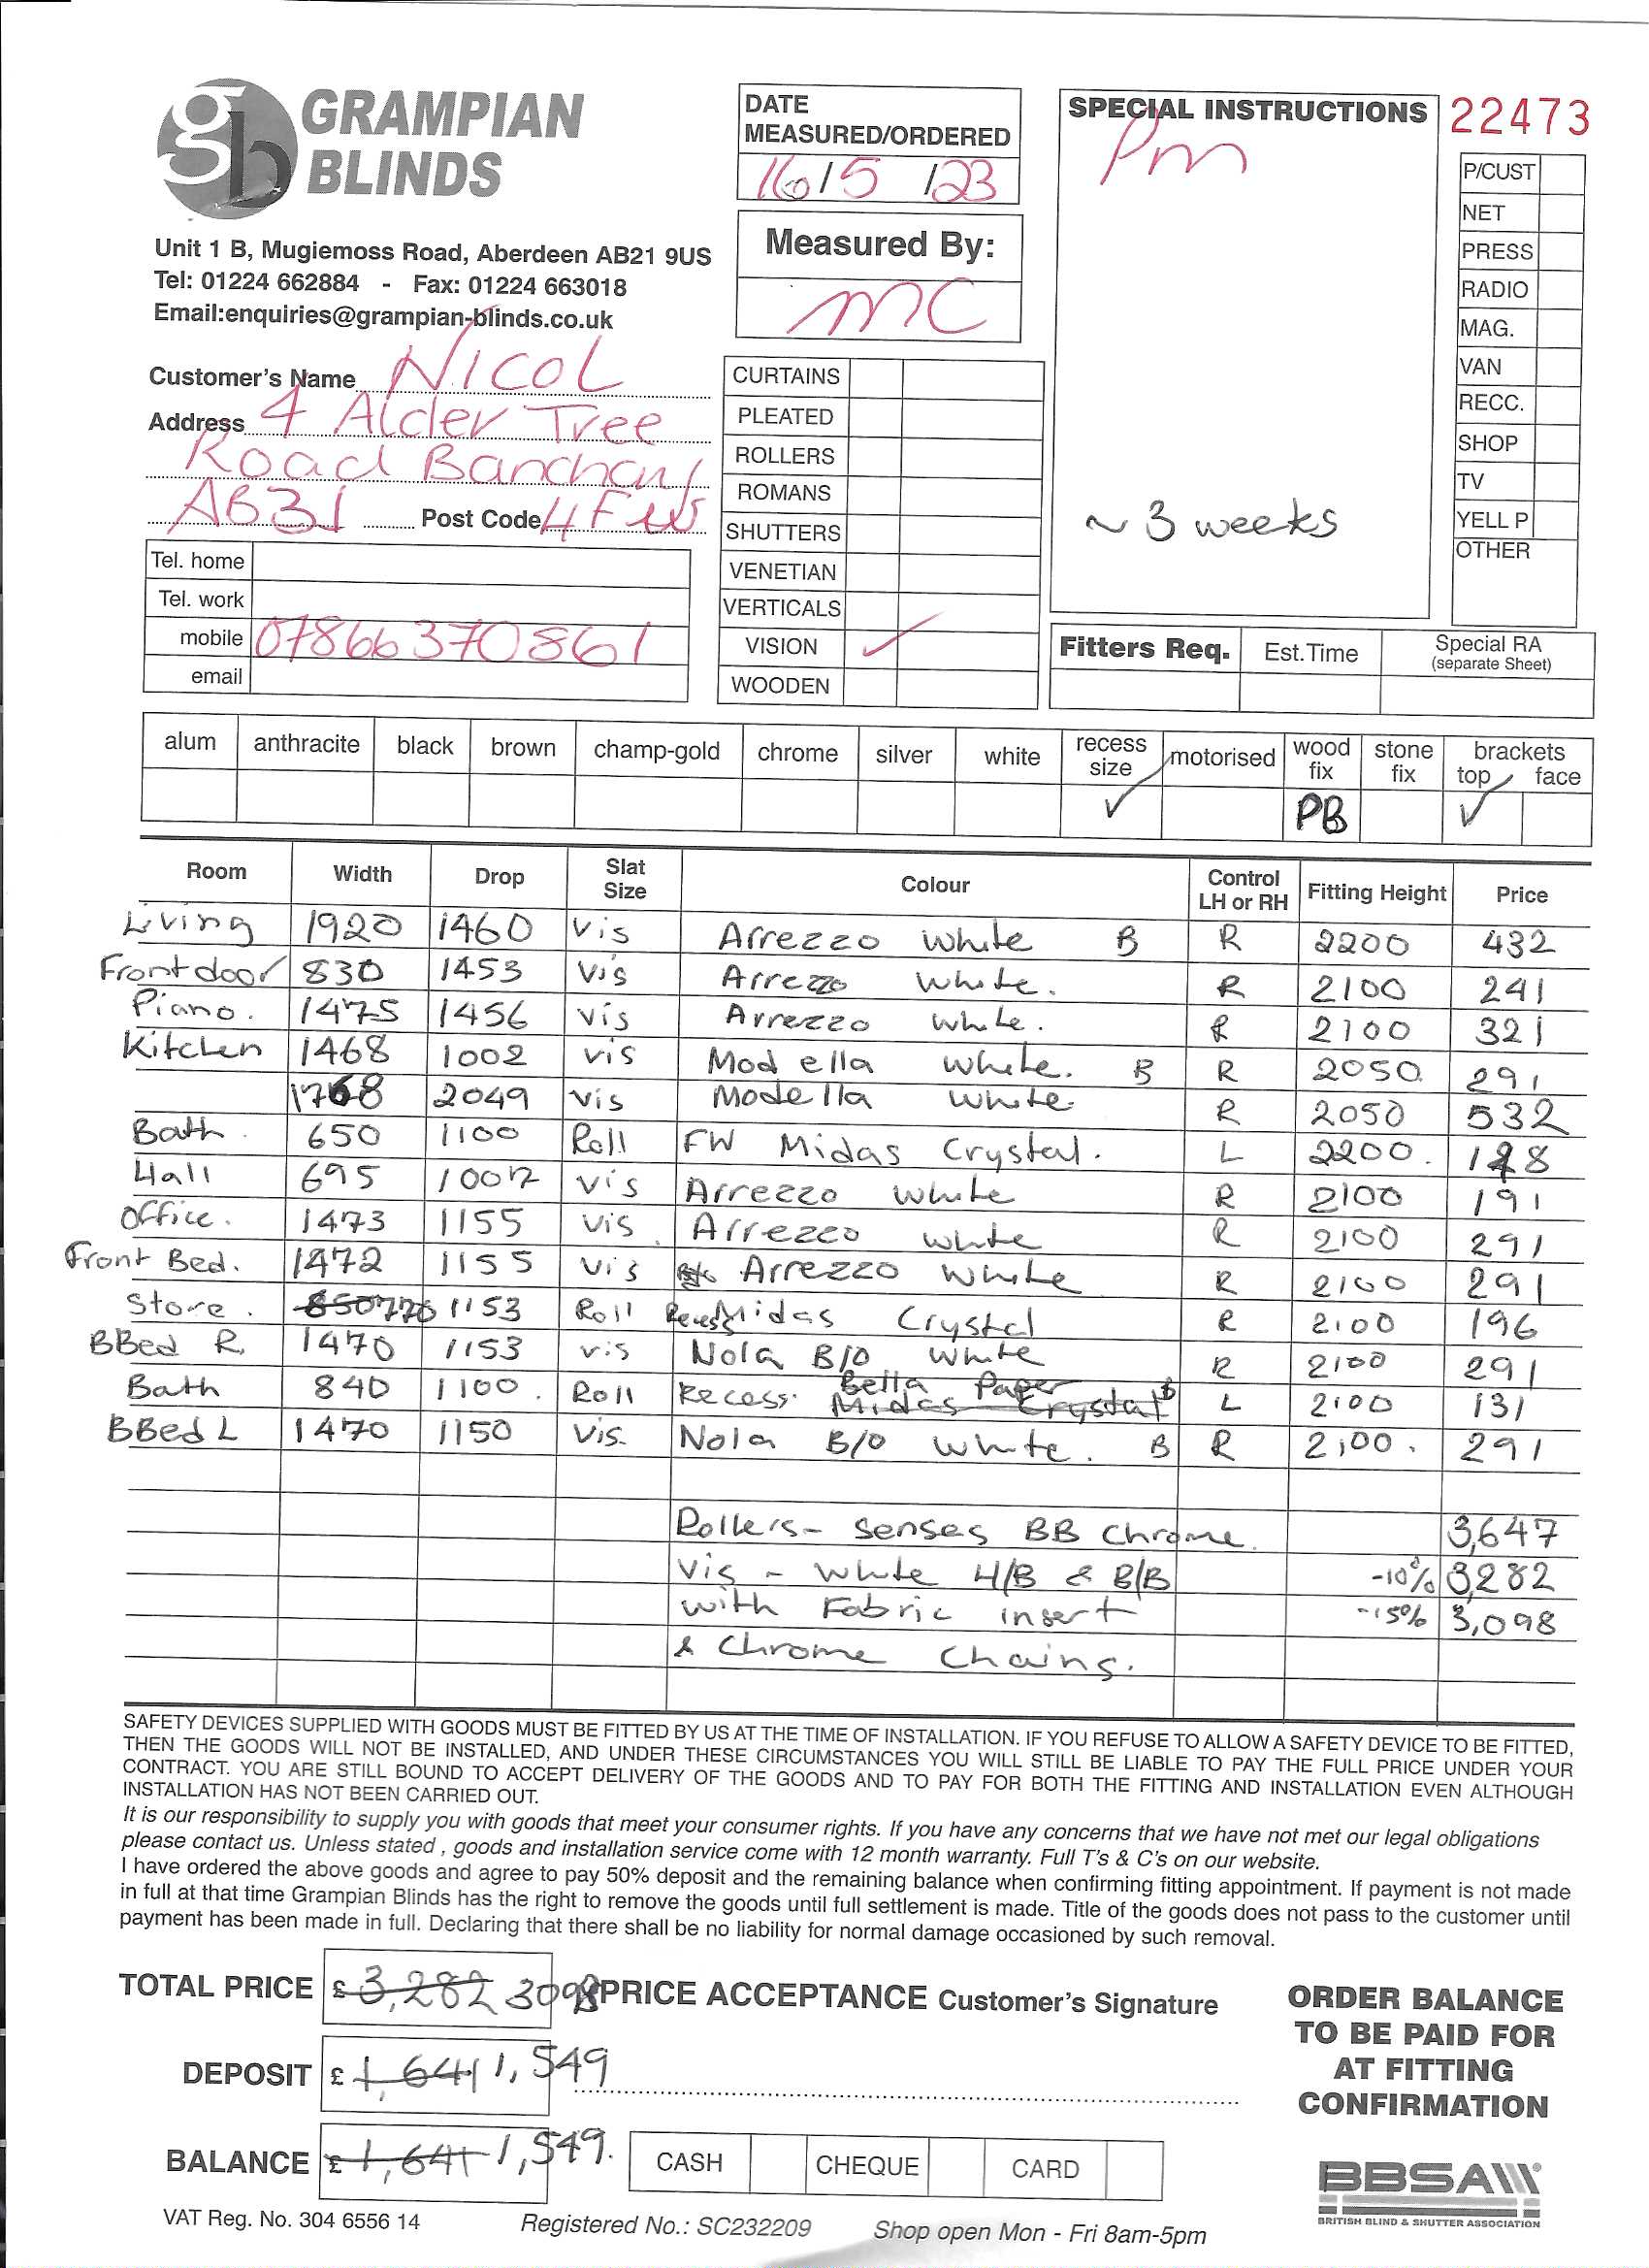 gb GRAMPIAN BLINDS
Unit 1 B, Mugiemoss Road, Aberdeen AB21 9US
Tel: 01224 662884 - Fax: 01224 663018
Email:enquiries@grampian-blinds.co.uk
DATE MEASURED/ORDERED
16/5/23
Measured By:
MC
SPECIAL INSTRUCTIONS
Pm
~ 3 weeks
22473
P/CUST
NET
PRESS
RADIO
MAG.
VAN
RECC.
SHOP
TV
YELL P
OTHER
Customer's Name NICOL
Address 4 Alder Tree
Road Banchory
AB31 Post Code 4FW
Tel. home
Tel. work
mobile 07866370861
email
CURTAINS
PLEATED
ROLLERS
ROMANS
SHUTTERS
VENETIAN
VERTICALS
VISION ✓
WOODEN
Fitters Req. Est.Time Special RA (separate Sheet)
alum anthracite black brown champ-gold chrome silver white recess size motorised wood fix stone fix brackets top face
✓ PB ✓
Room Width Drop Slat Size Colour Control LH or RH Fitting Height Price
Living 1920 1460 Vis Arrezzo White B R 2200 432
Front door 830 1453 Vis Arrezzo White. R 2100 241
Piano. 1475 1456 Vis Arrezzo White. R 2100 321
Kitchen 1468 1002 Vis Modella White. B R 2050 291
1768 2049 Vis Modella White. R 2050 532
Bath 650 1100 Roll FW Midas Crystal. L 2200. 128
Hall 695 1007 Vis Arrezzo White R 2100 191
Office. 1473 1155 Vis Arrezzo White R 2100 291
Front Bed. 1472 1155 Vis Arrezzo White R 2100 291
Store. 850 770 1153 Roll Recess Midas Crystal R 2100 196
BBed R. 1470 1153 Vis Nola B/O White R 2100 291
Bath 840 1100. Roll Recess. Bella Paper Midas Crystal B L 2100 131
BBed L 1470 1150 Vis. Nola B/O White. B R 2100. 291
Rollers- Senses BB Chrome. 3,647
Vis - White H/B & B/B -10% 3,282
with Fabric insert -15% 3,098
& Chrome Chains.
SAFETY DEVICES SUPPLIED WITH GOODS MUST BE FITTED BY US AT THE TIME OF INSTALLATION. IF YOU REFUSE TO ALLOW A SAFETY DEVICE TO BE FITTED,
THEN THE GOODS WILL NOT BE INSTALLED, AND UNDER THESE CIRCUMSTANCES YOU WILL STILL BE LIABLE TO PAY THE FULL PRICE UNDER YOUR
CONTRACT. YOU ARE STILL BOUND TO ACCEPT DELIVERY OF THE GOODS AND TO PAY FOR BOTH THE FITTING AND INSTALLATION EVEN ALTHOUGH
INSTALLATION HAS NOT BEEN CARRIED OUT.
It is our responsibility to supply you with goods that meet your consumer rights. If you have any concerns that we have not met our legal obligations
please contact us. Unless stated , goods and installation service come with 12 month warranty. Full T's & C's on our website.
I have ordered the above goods and agree to pay 50% deposit and the remaining balance when confirming fitting appointment. If payment is not made
in full at that time Grampian Blinds has the right to remove the goods until full settlement is made. Title of the goods does not pass to the customer until
payment has been made in full. Declaring that there shall be no liability for normal damage occasioned by such removal.
TOTAL PRICE £ 3,282 3098 PRICE ACCEPTANCE Customer's Signature
DEPOSIT £ 1,641 1,549
BALANCE £ 1,641 1,549.
CASH CHEQUE CARD
ORDER BALANCE
TO BE PAID FOR
AT FITTING
CONFIRMATION
BBSA
BRITISH BLIND & SHUTTER ASSOCIATION
VAT Reg. No. 304 6556 14 Registered No.: SC232209 Shop open Mon - Fri 8am-5pm